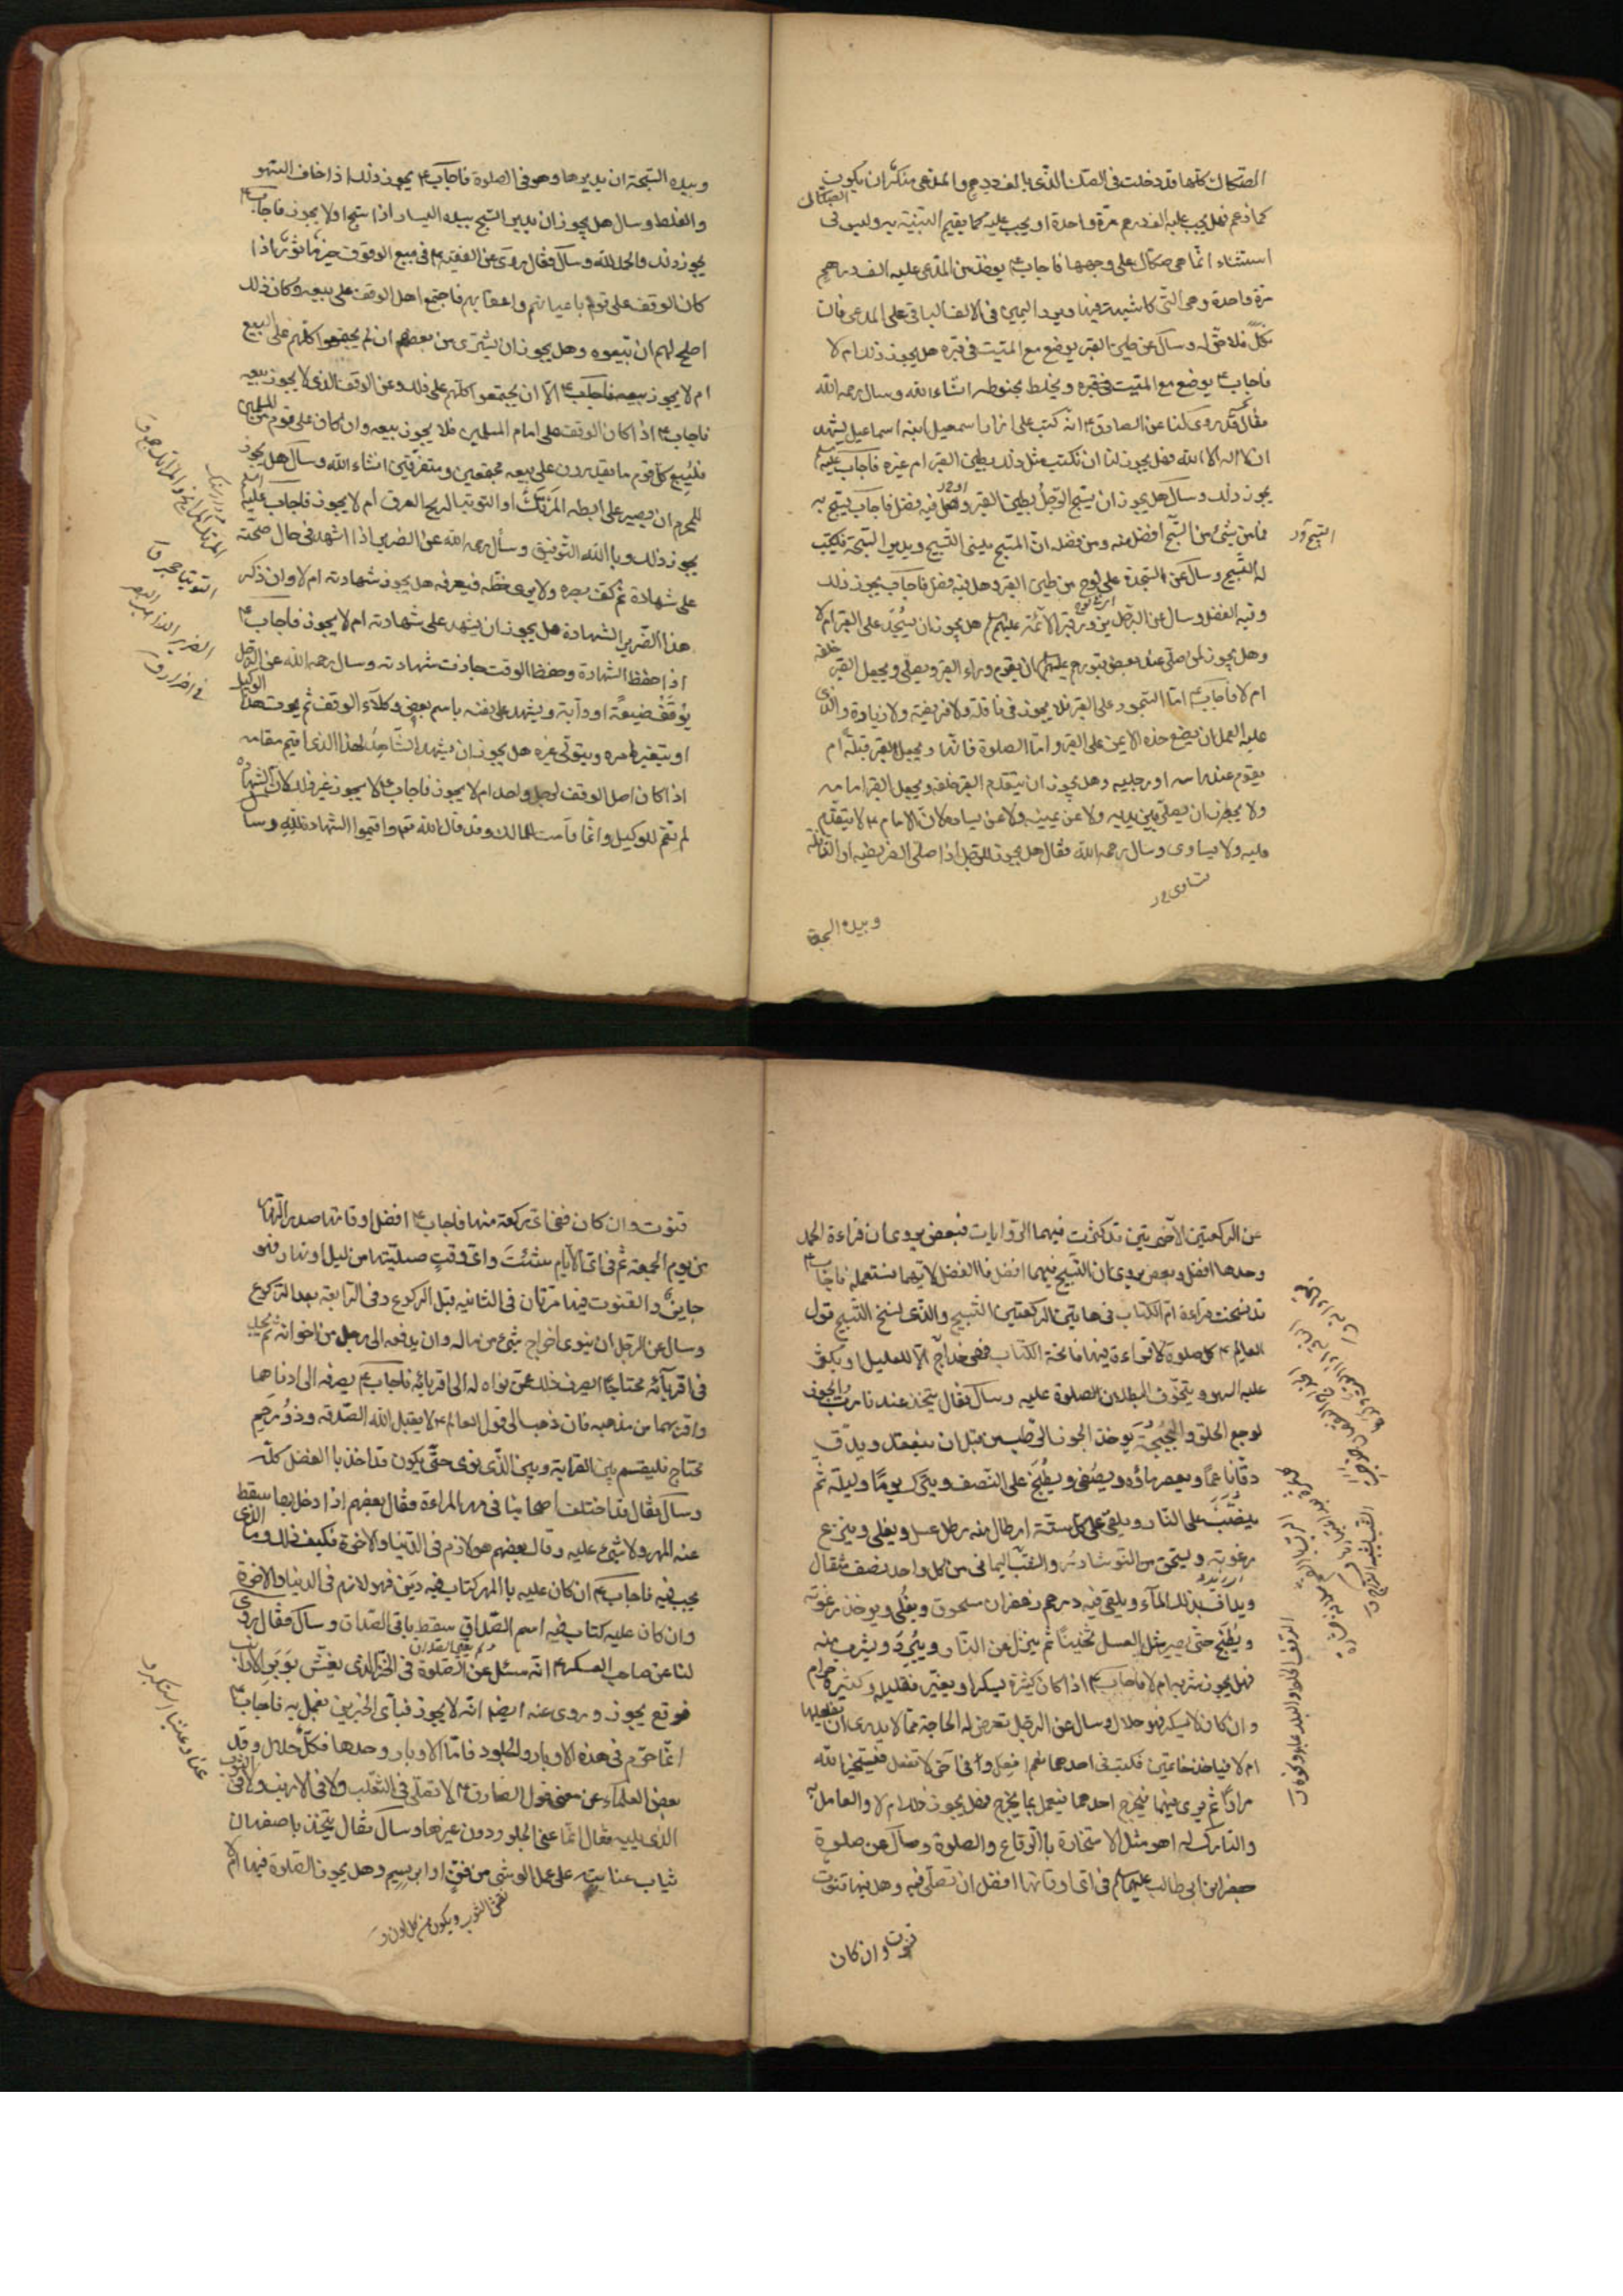 الصكاك كلها قد دخلت فى الصك الذى بالف درهم والمدعى منكر ان يكون
الصكاك
كما زعم فهل يجب عليه الف درهم مرة واحدة او يجب عليه كما يقيم البينة به وليس فى
استثناء انما هى صكاك على وجهها فاجاب ع يؤخذ من المدعى عليه الف درهم
مرة واحدة وهى التى لا شبهة فيها ويرد اليمين فى الالف الباقى على المدعى فان
نكل فلا حق له وسال عن طين القبر يوضع مع الميت فى قبره هل يجوز ذلك ام لا
فاجاب ع يوضع مع الميت فى قبره ويخلط بحنوطه انشاء الله وسال رحمه الله
فقال قد روى لنا عن الصادق ع انه كتب على ازار اسمعيل ابنه اسماعيل يشهد
ان لا اله الا الله فهل يجوز لنا ان نكتب مثل ذلك بطين القبر ام غيره فاجاب عليه
يجوز ذلك وسال هل يجوز ان يسبح الرجل بطين القبر وهل فيه فضل فاجاب يسبح به
فما من شىء من السبح افضل منه ومن فضله ان المسبح ينسى التسبيح ويدير السبحة فيكتب
له التسبيح وسال عن السجدة على لوح من طين القبر وهل فيه فضل فاجاب يجوز ذلك
وفيه الفضل وسال عن الرجل يزور قبور الائمة عليهم هل يجوز ان يسجد على القبر ام لا
وهل يجوز لمن صلى عند بعض قبورهم عليهم ان يقوم وراء القبر ويصلى ويجعل القبر
ام لا فاجاب ع اما السجود على القبر فلا يجوز فى نافلة ولا فريضة ولا زيارة والذى
عليه العمل ان يضع خده الايمن على القبر واما الصلوة فانها ويجعل القبر قبلة ام
يقوم عند راسه او رجليه وهل يجوز ان يتقدم القبر خلفه ويجعل القبر امامه
ولا يجوز ان يصلى بين يديه ولا عن يمينه ولا عن يساره لان الامام ع لا يتقدم
عليه ولا يساوى وسال رحمه الله فقال هل يجوز للرجل اذا صلى الفريضة او النافلة
وبيده السبحة
وبيده السبحة ان يديرها وهو فى الصلوة فاجاب ع يجوز ذلك اذا خاف السهو
والغلط وسال هل يجوز ان يدير السبح بيده اليسار اذا سبح اولا يجوز فاجاب ع
يجوز ذلك والحمد لله وسال فقال روى عن الفقيه ع فى بيع الوقوف خبر ماثور اذا
كان الوقف على قوم باعيانهم واعقابهم فاجتمع اهل الوقف على بيعه وكان ذلك
اصلح لهم ان يبيعوه وهل يجوز ان يشترى من بعضهم ان لم يجتمعوا كلهم على البيع
ام لا يجوز بيعه فاجاب ع الا ان يجتمعوا كلهم على ذلك وعن الوقف الذى لا يجوز بيعه
فاجاب ع اذا كان الوقف على امام المسلمين فلا يجوز بيعه وان كان على قوم من المسلمين
فليبع كل قوم ما يقدرون على بيعه مجتمعين ومتفرقين انشاء الله وسال هل يجوز
للمحرم ان يصير على ابطه المرتك او التوتيا لريح العرق ام لا يجوز فاجاب عليه
يجوز ذلك وبالله التوفيق وسال رحمه الله عن الضرير اذا اشهد فى حال صحته
على شهادة ثم كف بصره ولا يرى خطه فيعرفه هل يجوز شهادته ام لا وان ذكر
هذا الضرير الشهادة هل يجوز ان يشهد على شهادته ام لا يجوز فاجاب ع
اذا حفظ الشهادة وحفظ الوقت جازت شهادته وسال رحمه الله عن الرجل
يوقف ضيعة او دابة ويشهد على نفسه باسم بعض وكلاء الوقف ثم يموت هذا الوكيل
او يتغير امره ويتولى غيره هل يجوز ان يشهد الشاهد لهذا الذى اقيم مقامه
اذا كان اصل الوقف لرجل واحد ام لا يجوز فاجاب ع لا يجوز غير ذلك لان الشهادة
لم تقم للوكيل وانما قامت للمالك وقد قال الله تع واقيموا الشهادة لله وسال
عن الركعتين الاخيرتين قد كثرت فيهما الروايات فبعض يروى ان قراءة الحمد
وحدها افضل وبعض يروى ان التسبيح فيهما افضل فالفضل لايهما نستعمله فاجاب ع
قد نسخت قراءة ام الكتاب فى هاتين الركعتين التسبيح والذى نسخ التسبيح قول
العالم ع كل صلوة لا قراءة فيها فاتحة الكتاب فهى خداج الا للعليل او يكثر
عليه السهو ويتخوف بطلان الصلوة عليه وسال فقال يتخذ عندنا رب الجوز
لوجع الحلق والبحبحة يوخذ الجوز الرطب من قبل ان ينعقد ويدق
دقا ناعما ويعصر ماؤه ويصفى ويطبخ على النصف ويترك يوما وليلة ثم
ينصب على النار ويلقى على كل ستة ارطال منه رطل عسل ويغلى وينزع
رغوته ويسحق من النوشادر والشب اليمانى من كل واحد نصف مثقال
ويداف بذلك الماء ويلقى فيه درهم زعفران مسحوق ويغلى ويوخذ رغوته
ويطبخ حتى يصير مثل العسل ثخينا ثم ينزل عن النار ويبرد ويشرب منه
فهل يجوز شربه ام لا فاجاب ع اذا كان كثيره يسكر او يغير فقليله وكثيره حرام
وان كان لا يسكر فهو حلال وسال عن الرجل تعرض له الحاجة مما لا يدرى ان يفعلها
ام لا فياخذ خاتمين فيكتب فى احدهما نعم افعل وفى اخر لا تفعل فيستخير الله
مرارا ثم يرى فيهما فيخرج احدهما فيعمل بما يخرج فهل يجوز ذلك ام لا والعامل به
والتارك له اهو مثل الاستخارة بالرقاع والصلوة وسال عن صلوة
جعفر ابن ابى طالب عليهما فى اى اوقاتها افضل ان تصلى فيه وهل فيها قنوت
قنوت وان كان
قنوت وان كان ففى اى ركعة منها فاجاب ع افضل اوقاتها صدر النهار
من يوم الجمعة ثم فى اى الايام شئت واى وقت صليتها من ليل او نهار فهو
جايز والقنوت فيها مرتان فى الثانية قبل الركوع وفى الرابعة بعد الركوع
وسال عن الرجل ان ينوى اخراج شىء من ماله وان يدفعه الى رجل من اخوانه ثم يجد
فى اقربائه محتاجا ايصرف ذلك عمن نواه له الى اقربائه فاجاب ع يصرفه الى ادناهما
واقربهما من مذهبه فان ذهب الى قول العالم ع لا يقبل الله الصدقة وذو رحم
محتاج فليقسم بين القرابة وبين الذى نوى حتى يكون قد اخذ بالفضل كله
وسال فقال قد اختلف اصحابنا فى مهر المراءة فقال بعضهم اذا دخل بها سقط
عنه المهر ولا شىء عليه وقال بعضهم هو لازم فى الدنيا والاخرة فكيف ذلك وما الذى
يجب فيه فاجاب ع ان كان عليه بالمهر كتاب فيه دين فهو لازم فى الدنيا والاخرة
وان كان عليه كتاب فيه اسم الصداق سقط باقى الصداق وسال فقال روى
لنا عن صاحب العسكر ع انه سئل عن الصلوة فى الخز الذى يغش بوبر الارانب
فوقع يجوز وروى عنه ايضا انه لا يجوز فباى الخبرين نعمل به فاجاب ع
انما حرم فى هذه الاوبار والجلود فاما الاوبار وحدها فكل حلال وقد
بعض العلماء عن معنى قول الصادق ع لا تصلى فى الثعلب ولا فى الارنب ولا فى الثوب
الذى يليه فقال انما عنى الجلود دون غيرها وسال فقال يتخذ باصفهان
ثياب عنابية على عمل الوشى من قز او ابريسم وهل يجوز الصلوة فيها ام لا
نقش الثوب ويكون من كل لون